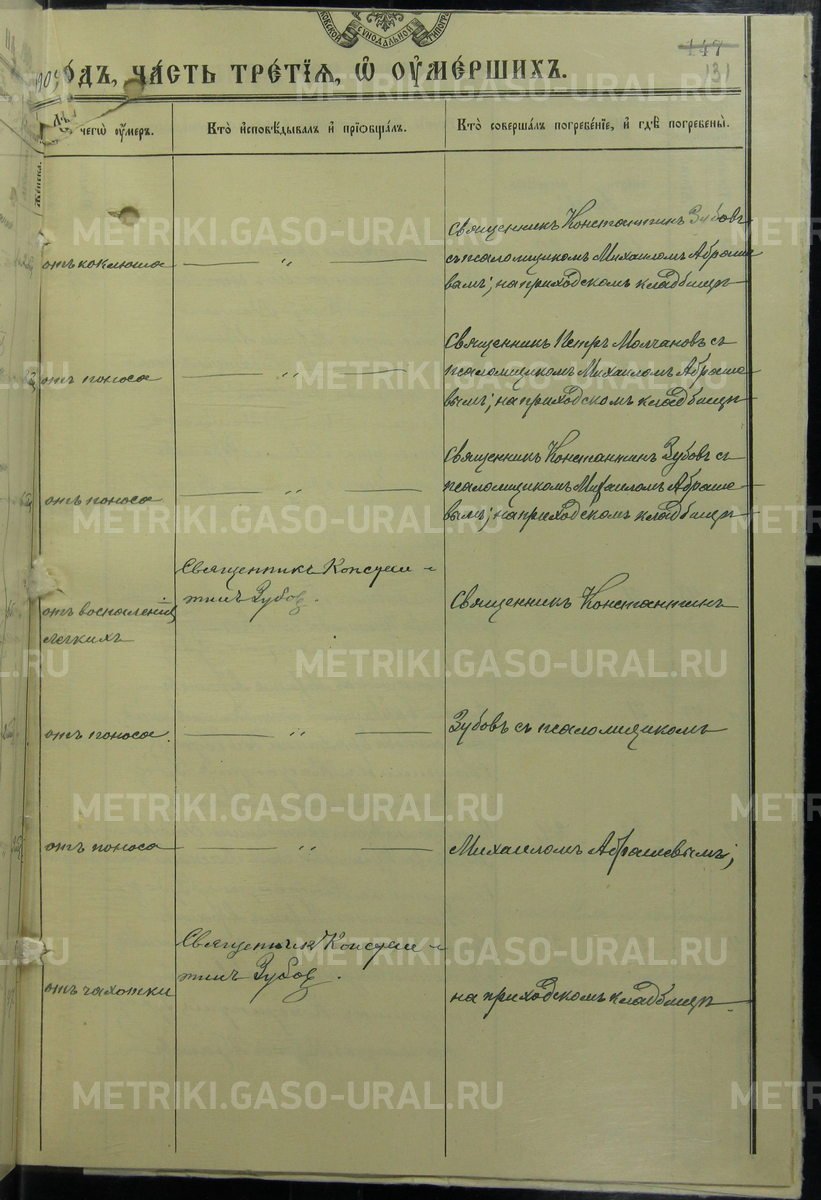 СУНОДАЛЬНОЙ
147
131
1905
ОДЪ, ЧАСТЬ ТРЕТІЯ, Ѡ ОУМЕРШИХЪ.
чегѡ оумеръ.
Кто исповѣдывалъ и пріобщалъ.
Кто совершалъ погребеніе, и гдѣ погребены.
Женска.
Священникъ Константинъ Зубовъ
съ псаломщикомъ Михаиломъ Абраше
отъ коклюша — " —
вымъ; на приходскомъ кладбищѣ
Священникъ Петръ Молчановъ съ
отъ поноса — " —
псаломщикомъ Михаиломъ Абраше-
вымъ; на приходскомъ кладбищѣ
Священникъ Константинъ Зубовъ съ
отъ поноса — " —
псаломщикомъ Михаиломъ Абраше-
вымъ; на приходскомъ кладбищѣ
отъ воспаленія
легкихъ
Священникъ Констан-
тинъ Зубов.
Священникъ Константинъ
отъ поноса. — " —
Зубовъ съ псаломщикомъ
отъ поноса — " —
Михаиломъ Абрашевымъ;
отъ чахотки
Священникъ Констан-
тинъ Зубов.
на приходскомъ кладбищѣ.
METRIKI.GASO-URAL.RU